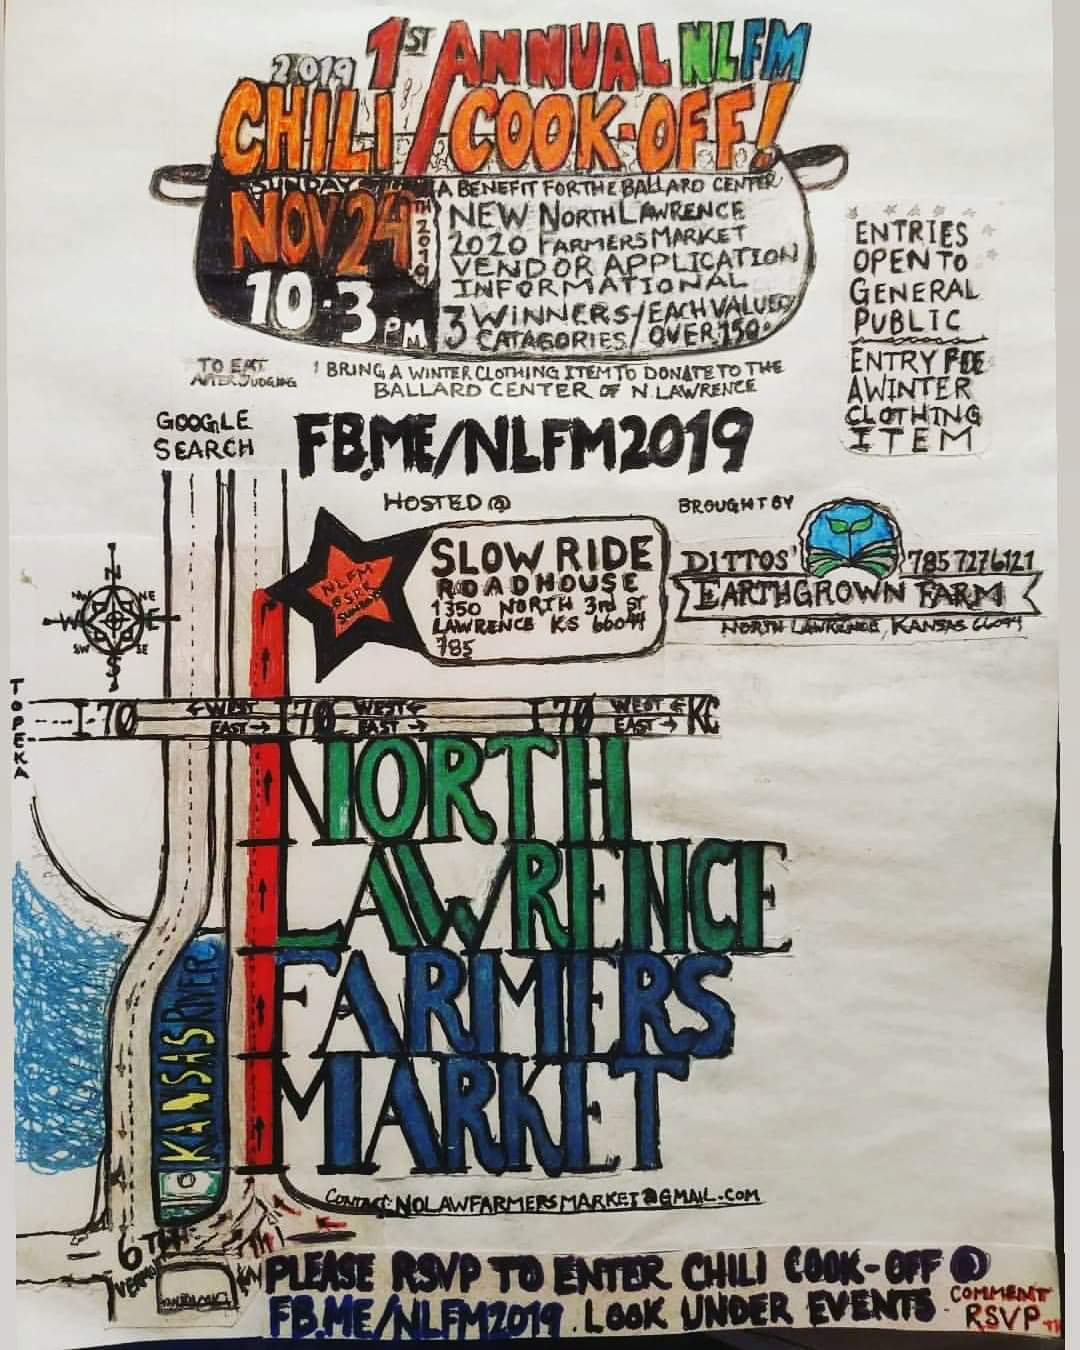 2019 1ST ANNUAL NLFM
CHILI / COOK-OFF!
SUNDAY
NOV 24TH 2019
10-3PM
A BENEFIT FOR THE BALLARD CENTER
NEW NORTH LAWRENCE
2020 FARMERS MARKET
VENDOR APPLICATION
INFORMATIONAL
3 WINNERS/EACH VALUED
CATAGORIES/OVER 150.
ENTRIES
OPEN TO
GENERAL
PUBLIC
ENTRY FEE
A WINTER
CLOTHING
ITEM
TO EAT
AFTER JUDGING
1 BRING A WINTER CLOTHING ITEM TO DONATE TO THE
BALLARD CENTER OF N. LAWRENCE
GOOGLE
SEARCH
FB.ME/NLFM2019
HOSTED @
SLOW RIDE
ROADHOUSE
1350 NORTH 3rd ST
LAWRENCE KS 66044
785
NLFM
BROUGHT BY
DITTOS' 785 7276121
EARTHGROWN FARM
NORTH LAWRENCE, KANSAS 66044
N
NE
E
SE
S
SW
W
NW
TOPEKA
I-70 ←WEST I70 WEST← I70 WEST← KC
EAST→ EAST→ EAST→
NORTH
LAWRENCE
FARMERS
MARKET
KANSAS RIVER
CONTACT: NOLAWFARMERSMARKET@GMAIL.COM
6TH
PLEASE RSVP TO ENTER CHILI COOK-OFF @
FB.ME/NLFM2019. LOOK UNDER EVENTS
COMMENT
RSVP